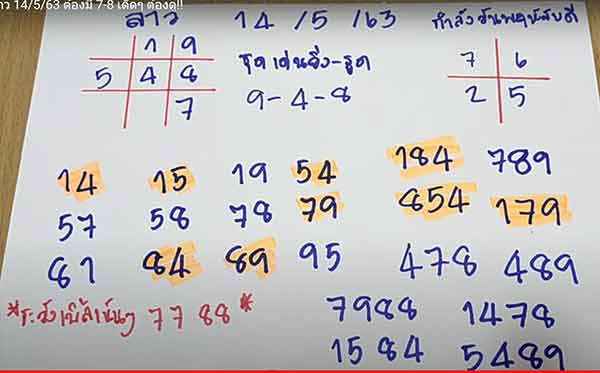 าว 14/5/63 ต้องมี 7-8 เด็ดๆ ต้องดู!!
ลาว 14 /5 /63
กำลังวันพฤหัสบดี
1 9
5 4 8
7
ชุดเด่นยิง-รูด
9-4-8
7 6
2 5
14 15 19 54 184 789
57 58 78 79 854 179
81 84 89 95 478 489
*ระวังเบิ้ลเน้นๆ 77 88*
7988 1478
1584 5489